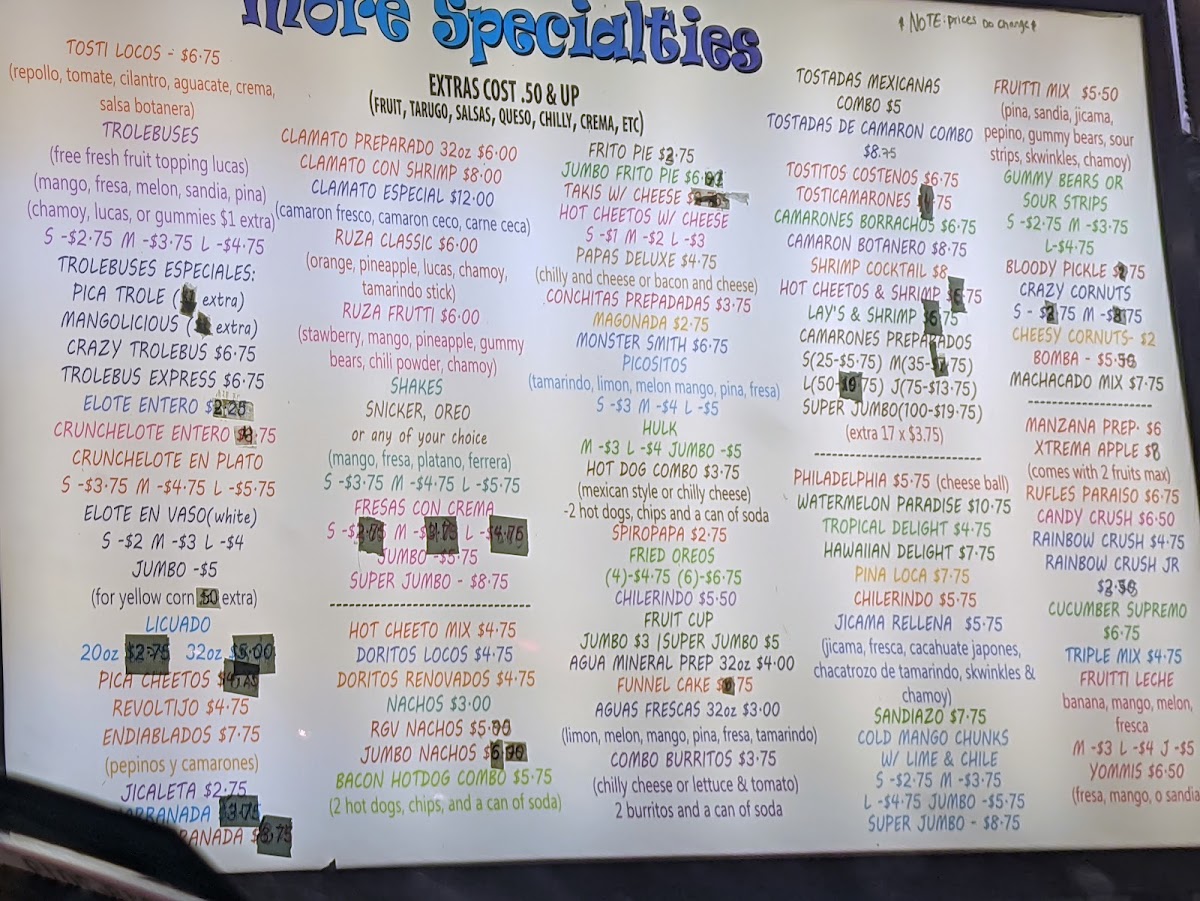 More Specialties
* NOTE: prices Do change *
TOSTI LOCOS - $6.75
(repollo, tomate, cilantro, aguacate, crema,
salsa botanera)
TROLEBUSES
(free fresh fruit topping lucas)
(mango, fresa, melon, sandia, pina)
(chamoy, lucas, or gummies $1 extra)
S -$2.75 M -$3.75 L -$4.75
TROLEBUSES ESPECIALES:
PICA TROLE ( extra)
MANGOLICIOUS ( extra)
CRAZY TROLEBUS $6.75
TROLEBUS EXPRESS $6.75
ELOTE ENTERO $2.25
CRUNCHELOTE ENTERO $3.75
CRUNCHELOTE EN PLATO
S -$3.75 M -$4.75 L -$5.75
ELOTE EN VASO(white)
S -$2 M -$3 L -$4
JUMBO -$5
(for yellow corn .50 extra)
LICUADO
20oz $2.75 32oz $5.00
PICA CHEETOS
REVOLTIJO $4.75
ENDIABLADOS $7.75
(pepinos y camarones)
JICALETA $2.75
$3.75
RANADA $5.75
EXTRAS COST .50 & UP
(FRUIT, TARUGO, SALSAS, QUESO, CHILLY, CREMA, ETC)
CLAMATO PREPARADO 32oz $6.00
CLAMATO CON SHRIMP $8.00
CLAMATO ESPECIAL $12.00
(camaron fresco, camaron ceco, carne ceca)
RUZA CLASSIC $6.00
(orange, pineapple, lucas, chamoy,
tamarindo stick)
RUZA FRUTTI $6.00
(stawberry, mango, pineapple, gummy
bears, chili powder, chamoy)
SHAKES
SNICKER, OREO
or any of your choice
(mango, fresa, platano, ferrera)
S -$3.75 M -$4.75 L -$5.75
FRESAS CON CREMA
S -$2.75 M -$3.75 L -$4.75
JUMBO -$5.75
SUPER JUMBO - $8.75
HOT CHEETO MIX $4.75
DORITOS LOCOS $4.75
DORITOS RENOVADOS $4.75
NACHOS $3.00
RGV NACHOS $5.00
JUMBO NACHOS $6
BACON HOTDOG COMBO $5.75
(2 hot dogs, chips, and a can of soda)
FRITO PIE $3.75
JUMBO FRITO PIE $6
TAKIS W/ CHEESE
HOT CHEETOS W/ CHEESE
S -$1 M -$2 L -$3
PAPAS DELUXE $4.75
(chilly and cheese or bacon and cheese)
CONCHITAS PREPADADAS $3.75
MAGONADA $2.75
MONSTER SMITH $6.75
PICOSITOS
(tamarindo, limon, melon mango, pina, fresa)
S -$3 M -$4 L -$5
HULK
M -$3 L -$4 JUMBO -$5
HOT DOG COMBO $3.75
(mexican style or chilly cheese)
-2 hot dogs, chips and a can of soda
SPIROPAPA $2.75
FRIED OREOS
(4)-$4.75 (6)-$6.75
CHILERINDO $5.50
FRUIT CUP
JUMBO $3 |SUPER JUMBO $5
AGUA MINERAL PREP 32oz $4.00
FUNNEL CAKE $ 75
AGUAS FRESCAS 32oz $3.00
(limon, melon, mango, pina, fresa, tamarindo)
COMBO BURRITOS $3.75
(chilly cheese or lettuce & tomato)
2 burritos and a can of soda
TOSTADAS MEXICANAS
COMBO $5
TOSTADAS DE CAMARON COMBO
$8.75
TOSTITOS COSTENOS $6.75
TOSTICAMARONES 75
CAMARONES BORRACHOS $6.75
CAMARON BOTANERO $8.75
SHRIMP COCKTAIL $8
HOT CHEETOS & SHRIMP $6.75
LAY'S & SHRIMP $6.75
CAMARONES PREPARADOS
S(25-$5.75) M(35-$ 75)
L(50-$10.75) J(75-$13.75)
SUPER JUMBO(100-$19.75)
(extra 17 x $3.75)
PHILADELPHIA $5.75 (cheese ball)
WATERMELON PARADISE $10.75
TROPICAL DELIGHT $4.75
HAWAIIAN DELIGHT $7.75
PINA LOCA $7.75
CHILERINDO $5.75
JICAMA RELLENA $5.75
(jicama, fresca, cacahuate japones,
chacatrozo de tamarindo, skwinkles &
chamoy)
SANDIAZO $7.75
COLD MANGO CHUNKS
W/ LIME & CHILE
S -$2.75 M -$3.75
L -$4.75 JUMBO -$5.75
SUPER JUMBO - $8.75
FRUITTI MIX $5.50
(pina, sandia, jicama,
pepino, gummy bears, sour
strips, skwinkles, chamoy)
GUMMY BEARS OR
SOUR STRIPS
S -$2.75 M -$3.75
L-$4.75
BLOODY PICKLE $ 75
CRAZY CORNUTS
S - $2.75 M -$3.75
CHEESY CORNUTS- $2
BOMBA - $5.50
MACHACADO MIX $7.75
MANZANA PREP. $6
XTREMA APPLE $8
(comes with 2 fruits max)
RUFLES PARAISO $6.75
CANDY CRUSH $6.50
RAINBOW CRUSH $4.75
RAINBOW CRUSH JR
$2.50
CUCUMBER SUPREMO
$6.75
TRIPLE MIX $4.75
FRUITTI LECHE
banana, mango, melon,
fresca
M -$3 L -$4 J -$5
YOMMIS $6.50
(fresa, mango, o sandia